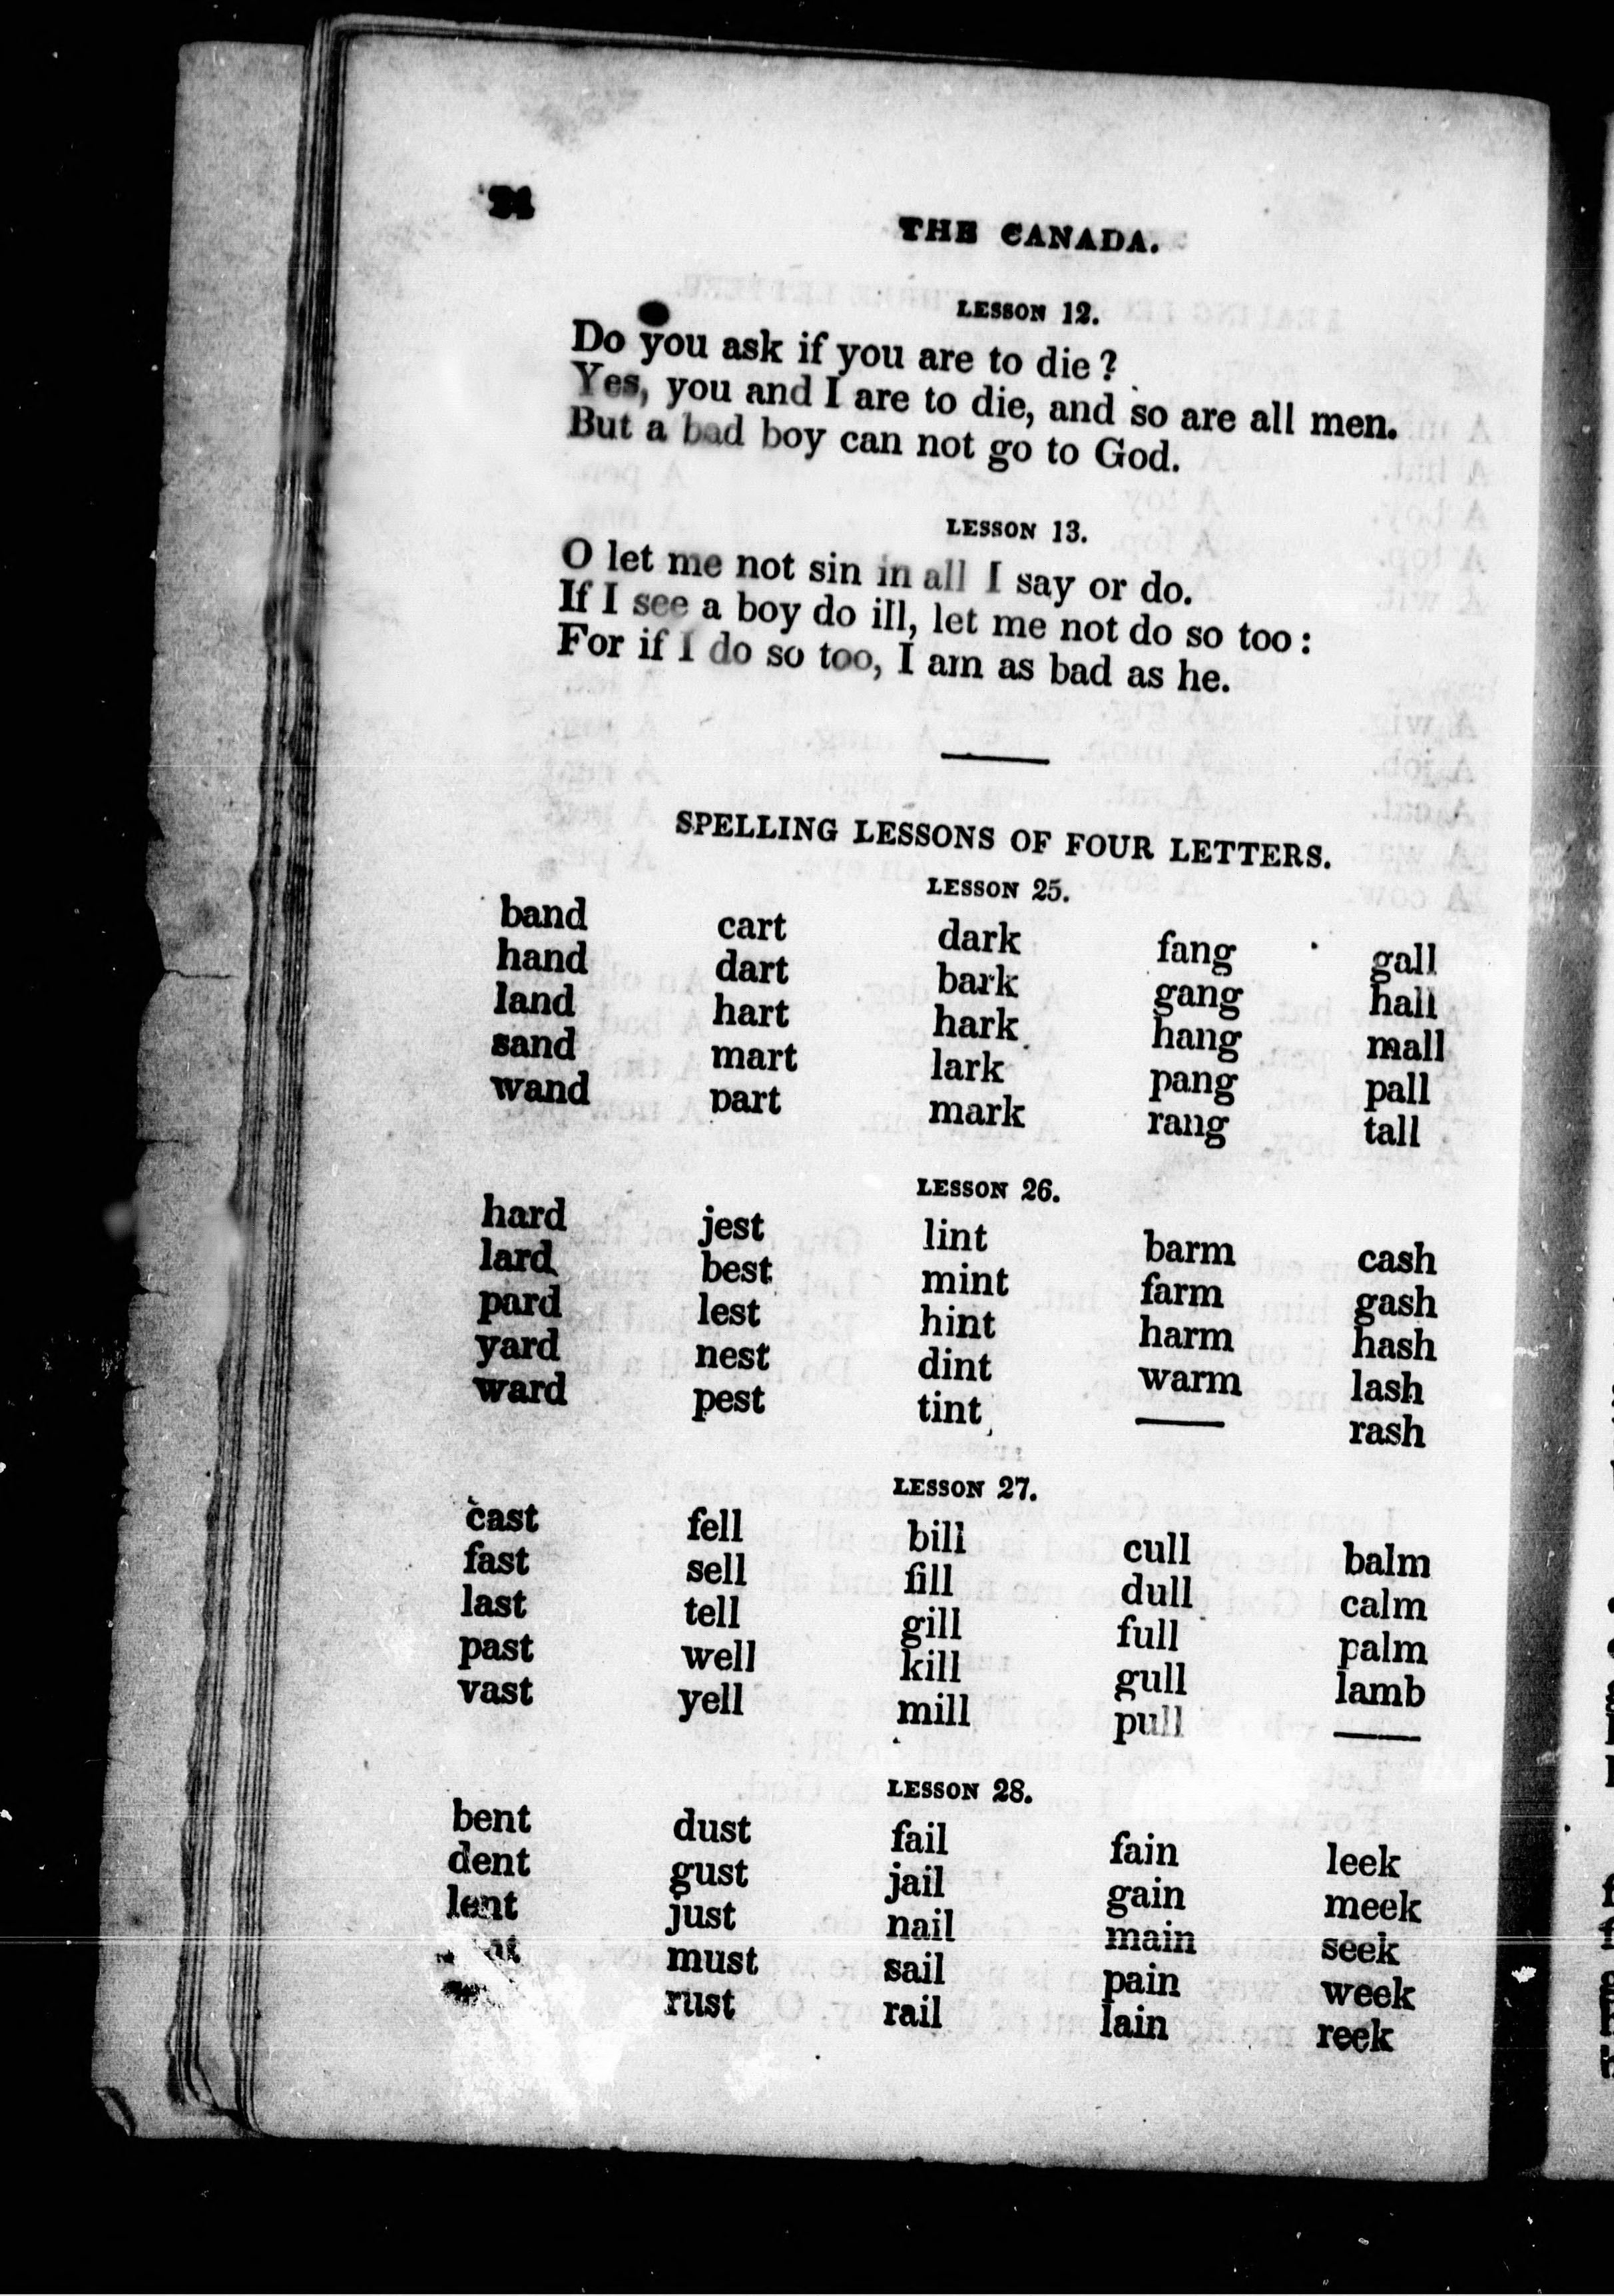 24
THE CANADA.
LESSON 12.
Do you ask if you are to die?
Yes, you and I are to die, and so are all men.
But a bad boy can not go to God.
LESSON 13.
O let me not sin in all I say or do.
If I see a boy do ill, let me not do so too:
For if I do so too, I am as bad as he.
SPELLING LESSONS OF FOUR LETTERS.
LESSON 25.
band cart dark fang gall
hand dart bark gang hall
land hart hark hang mall
sand mart lark pang pall
wand part mark rang tall
LESSON 26.
hard jest lint barm cash
lard best mint farm gash
pard lest hint harm hash
yard nest dint warm lash
ward pest tint —— rash
LESSON 27.
cast fell bill cull balm
fast sell fill dull calm
last tell gill full palm
past well kill gull lamb
vast yell mill pull ——
LESSON 28.
bent dust fail fain leek
dent gust jail gain meek
lent just nail main seek
must sail pain week
rust rail lain reek